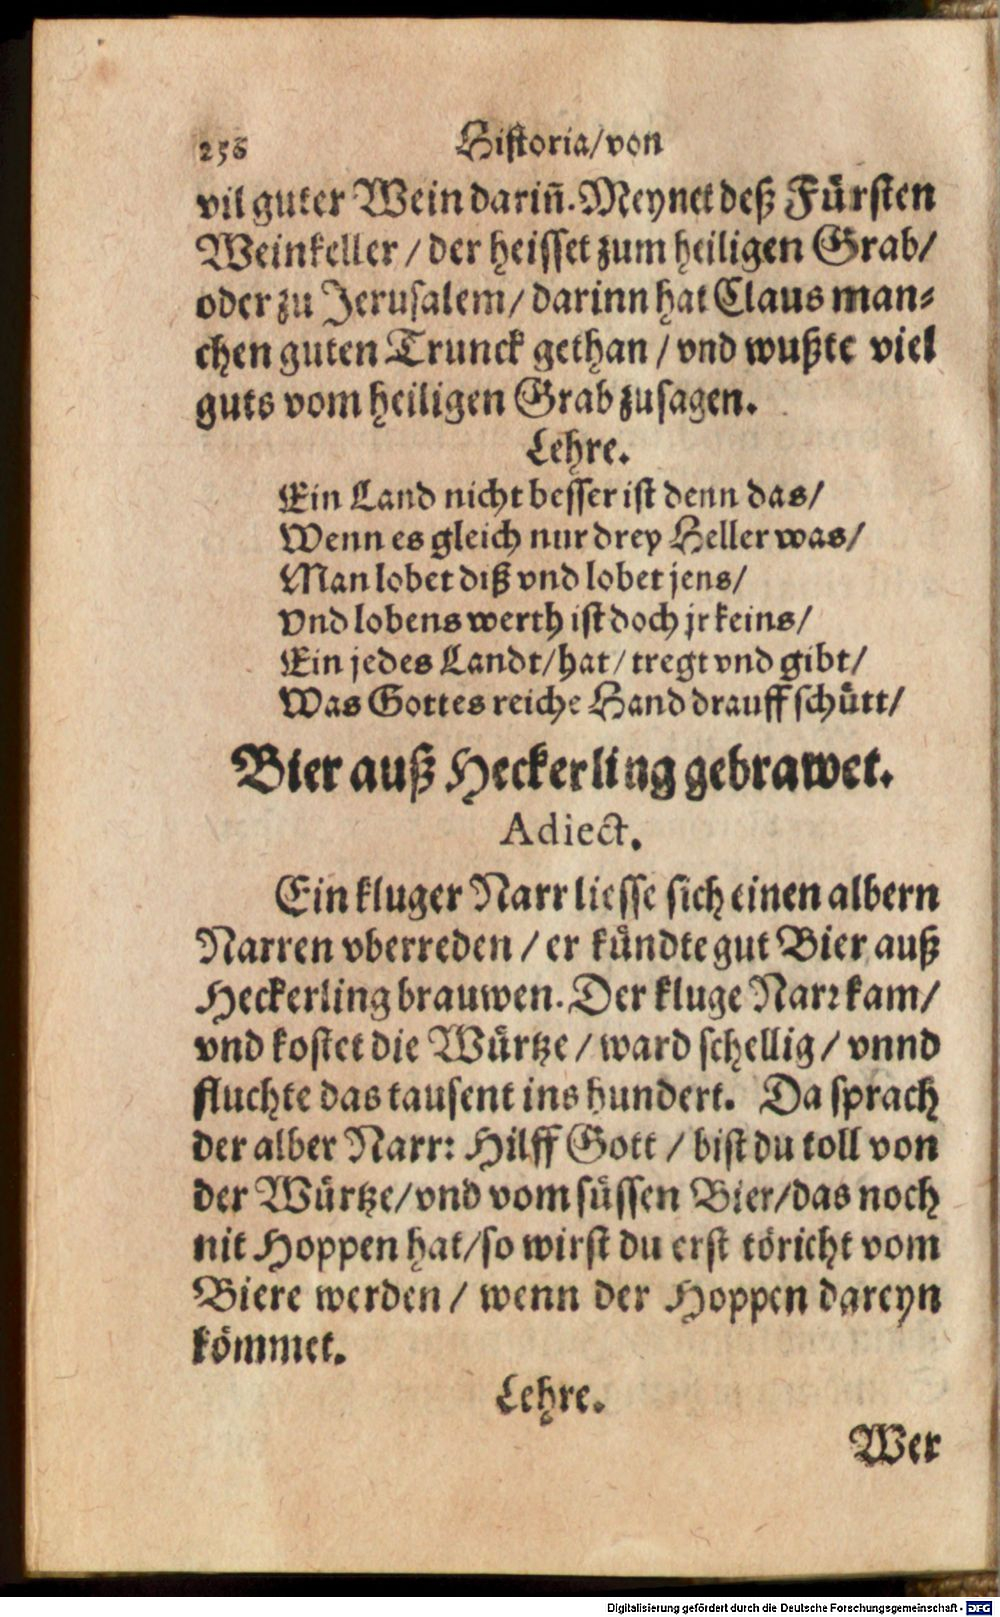 256 Historia/von
vil guter Wein dariñ. Meynet deß Fürsten
Weinkeller / der heisset zum heiligen Grab/
oder zu Jerusalem/ darinn hat Claus man⸗
chen guten Trunck gethan / vnd wußte viel
guts vom heiligen Grab zusagen.
Lehre.
Ein Land nicht besser ist denn das/
Wenn es gleich nur drey Heller was/
Man lobet diß vnd lobet jens/
Vnd lobens werth ist doch jr keins/
Ein jedes Landt/hat/tregt vnd gibt/
Was Gottes reiche Hand drauff schütt/
Bier auß Heckerling gebrawet.
Adiect.
Ein kluger Narr liesse sich einen albern
Narren vberreden / er kündte gut Bier auß
Heckerling brauwen. Der kluge Narr kam/
vnd kostet die Würtze / ward schellig / vnnd
fluchte das tausent ins hundert. Da sprach
der alber Narr: Hilff Gott / bist du toll von
der Würtze/vnd vom süssen Bier/das noch
nit Hoppen hat/so wirst du erst töricht vom
Biere werden / wenn der Hoppen dareyn
kömmet.
Lehre.
Wer
Digitalisierung gefördert durch die Deutsche Forschungsgemeinschaft - DFG